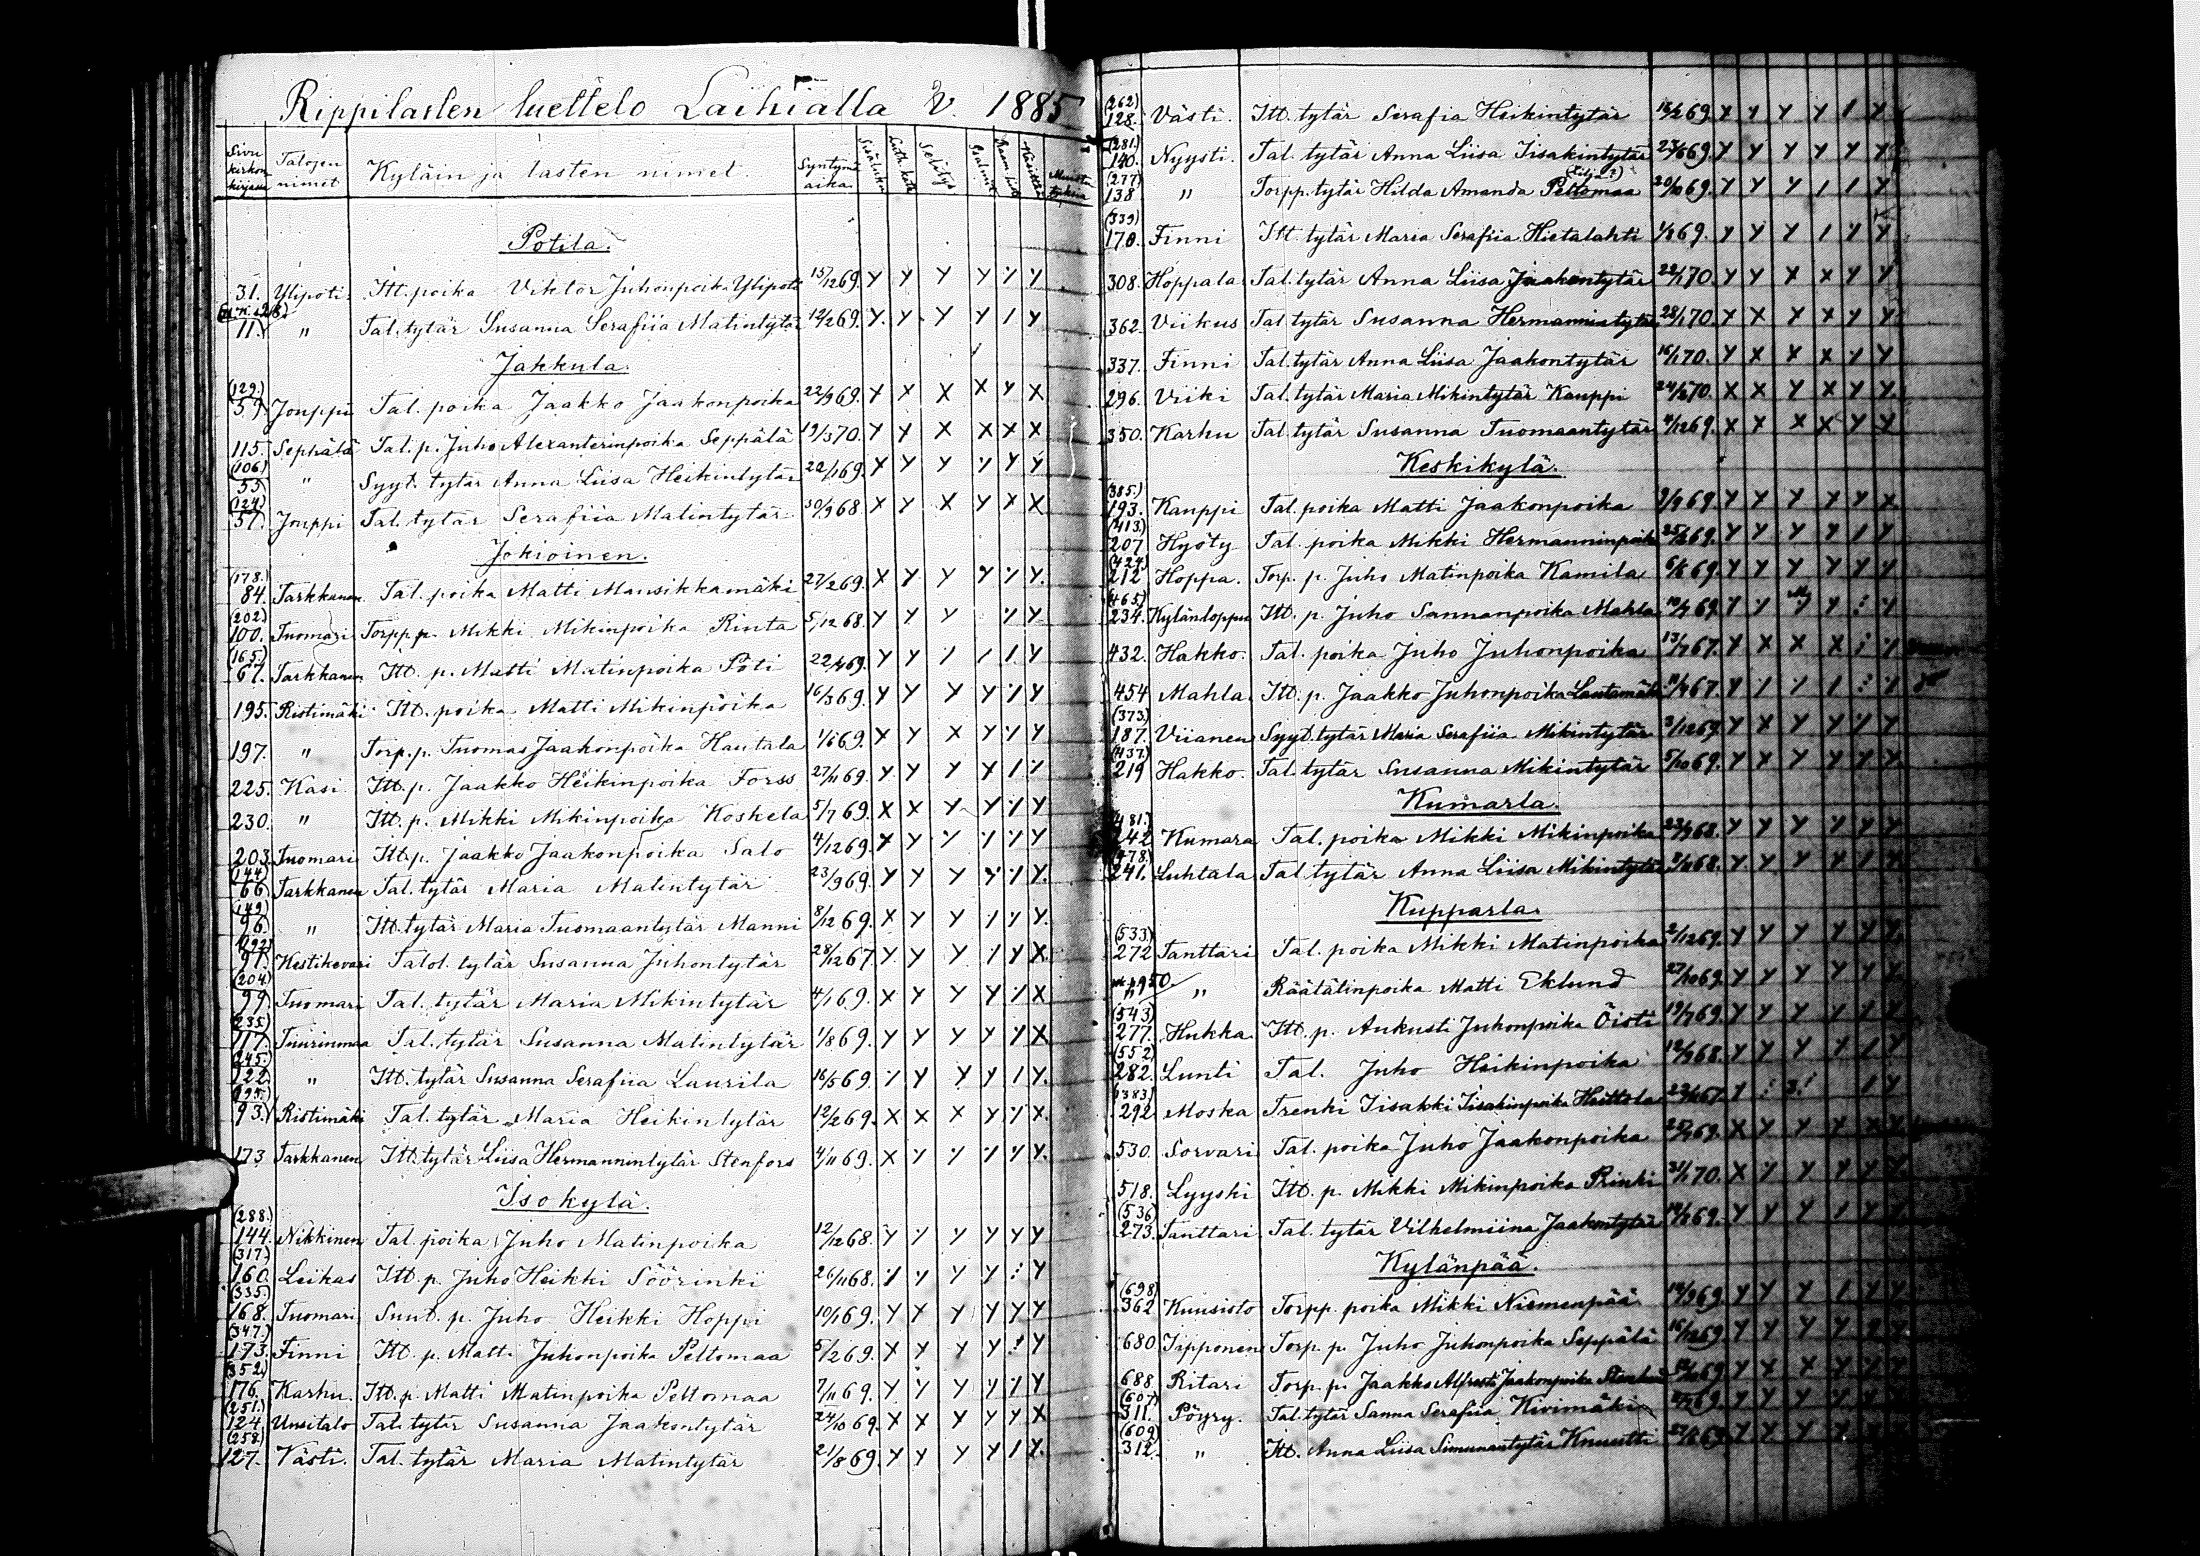 Rippilasten luettelo Laihialla V. 1885
Sivu kirkon kirjassa Talojen nimet Kyläin ja lasten nimet. Syntymä aika Sisäluku Selitys
Potila.
31. Ylipoti Itt. poika Viktor Juhonpoika Ylipoti 15/12 69.
11. " Tal. tytär Susanna Serafiia Matintytär 12/2 69.
Jakkula.
(129.)
59. Jouppi Tal. poika Jaakko Jaakonpoika 22/9 69.
115. Seppälä Tal. p. Juho Alexanterinpoika Seppälä 19/3 70.
(106.)
55. " Syyt. tytär Anna Liisa Heikintytär 22/1 69.
(124)
57. Jouppi Tal. tytär Serafiia Matintytär 30/9 68
Jokioinen.
(178.)
84. Tarkkanen Tal. poika Matti Mansikkamäki 27/2 69.
(202)
100. Tuomari Torpp. p. Mikki Mikinpoika Rinta 5/12 68.
(165.)
67. Tarkkanen Itt. p. Matti Matinpoika Poti 22/4 69.
195. Ristimäki Itt. poika Matti Mikinpoika 16/3 69.
197. " Torp. p. Tuomas Jaakonpoika Hautala 1/6 69.
225. Kasi Itt. p. Jaakko Heikinpoika Forss 27/11 69.
230. " Itt. p. Mikki Mikinpoika Koskela 5/7 69.
203. Tuomari Itt. p. Jaakko Jaakonpoika Salo 4/12 69.
(144)
66 Tarkkanen Tal. tytär Maria Matintytär 23/9 69.
(149)
96. " Itt. tytär Maria Tuomaantytär Manni 8/12 69.
(192)
97. Kestikevari Talol. tytär Susanna Juhontytär 28/12 67.
(204)
99. Tuomari Tal. tytär Maria Mikintytär 4/1 69.
(235)
117. Tuurinmaa Tal. tytär Susanna Matintytär 1/8 69.
(245.)
122. " Itt. tytär Susanna Serafiia Laurila 16/5 69.
(195)
93. Ristimäki Tal. tytär Maria Heikintytär 12/2 69.
173 Tarkkanen Itt. tytär Liisa Hermannintytär Stenfors 4/11 69.
Isokylä.
(288.)
144. Nikkinen Tal. poika Juho Matinpoika 12/12 68.
(317)
160. Leikas Itt. p. Juho Heikki Söörinki 26/11 68.
(335.)
168. Tuomari Suut. p. Juho Heikki Hoppi 10/1 69.
(347.)
173. Finni Itt. p. Matti Juhonpoika Peltomaa 5/2 69.
(352)
176. Karhu. Itt. p. Matti Matinpoika Peltomaa 7/11 69.
(251.)
124. Uusitalo Tal. tytär Susanna Jaakontytär 24/10 69.
(258)
127. Västi. Tal. tytär Maria Matintytär 21/8 69.
(262)
128. Västi. Itt. tytär Serafia Heikintytär 18/2 69.
(281.)
140. Nyysti. Tal. tytär Anna Liisa Iisakintytär 23/6 69.
(277) (Lilja?)
138 " Torpp. tytär Hilda Amanda Peltomaa 20/10 69.
(339)
170. Finni Itt. tytär Maria Serafiia Hietalahti 1/8 69.
308. Hoppala Tal. tytär Anna Liisa Jaakontytär 22/1 70.
362. Viikus Tal. tytär Susanna Hermannintytär 28/1 70.
337. Finni Tal. tytär Anna Liisa Jaakontytär 16/1 70.
296. Viiki Tal. tytär Maria Mikintytär Kauppi 24/2 70.
350. Karhu Tal. tytär Susanna Tuomaantytär 4/12 69.
Keskikylä.
(385.)
193. Kauppi Tal. poika Matti Jaakonpoika 3/9 69.
(413.)
207 Hyöty Tal. poika Mikki Hermanninpoika 25/2 69.
(424)
212 Hoppa. Torp. p. Juho Matinpoika Kamila 6/6 69.
(465)
234. Kylänloppu Itt. p. Juho Sannanpoika Mahla 10/7 69.
432. Hakko. Tal. poika Juho Juhonpoika 13/7 67.
454 Mahla Itt. p. Jaakko Juhonpoika Lautamäki 11/7 67.
(373)
187. Viianen Syyt. tytär Maria Serafiia Mikintytär 3/12 69.
(437.)
219 Hakko. Tal. tytär Susanna Mikintytär 5/10 69.
Kumarla.
(481.)
242 Kumara Tal. poika Mikki Mikinpoika 23/9 68.
(478.)
241. Luhtala Tal. tytär Anna Liisa Mikintytär 68.
Kupparla.
(533)
272 Tanttari Tal. poika Mikki Matinpoika 2/12 69.
" Räätälinpoika Matti Eklund 27/10 69.
(543)
277. Hukka Itt. p. Aukusti Juhonpoika Öisti 19/7 69.
(552)
282. Lunti Tal. Juho Heikinpoika 12/9 68.
292 Moska Trenki Iisakki Iisakinpoika Heittola 67.
530. Sorvari Tal. poika Juho Jaakonpoika 69.
518. Lyyski Itt. p. Mikki Mikinpoika Rinki 31/1 70.
(536)
273. Tanttari Tal. tytär Vilhelmiina Jaakontytär 69.
Kylänpää.
(698)
362 Kuusisto Torpp. poika Mikki Niemenpää 19/9 69.
680 Tipponen Torp. p. Juho Juhonpoika Seppälä 69.
688 Ritari Torp. p. Jaakko Alfreeti Jaakonpoika 69
(607)
311. Pöyry. Tal. tytär Sanna Serafiia Kivimäki 69.
(609)
312. " Itt. Anna Liisa Simunantytär Knuutti 69.